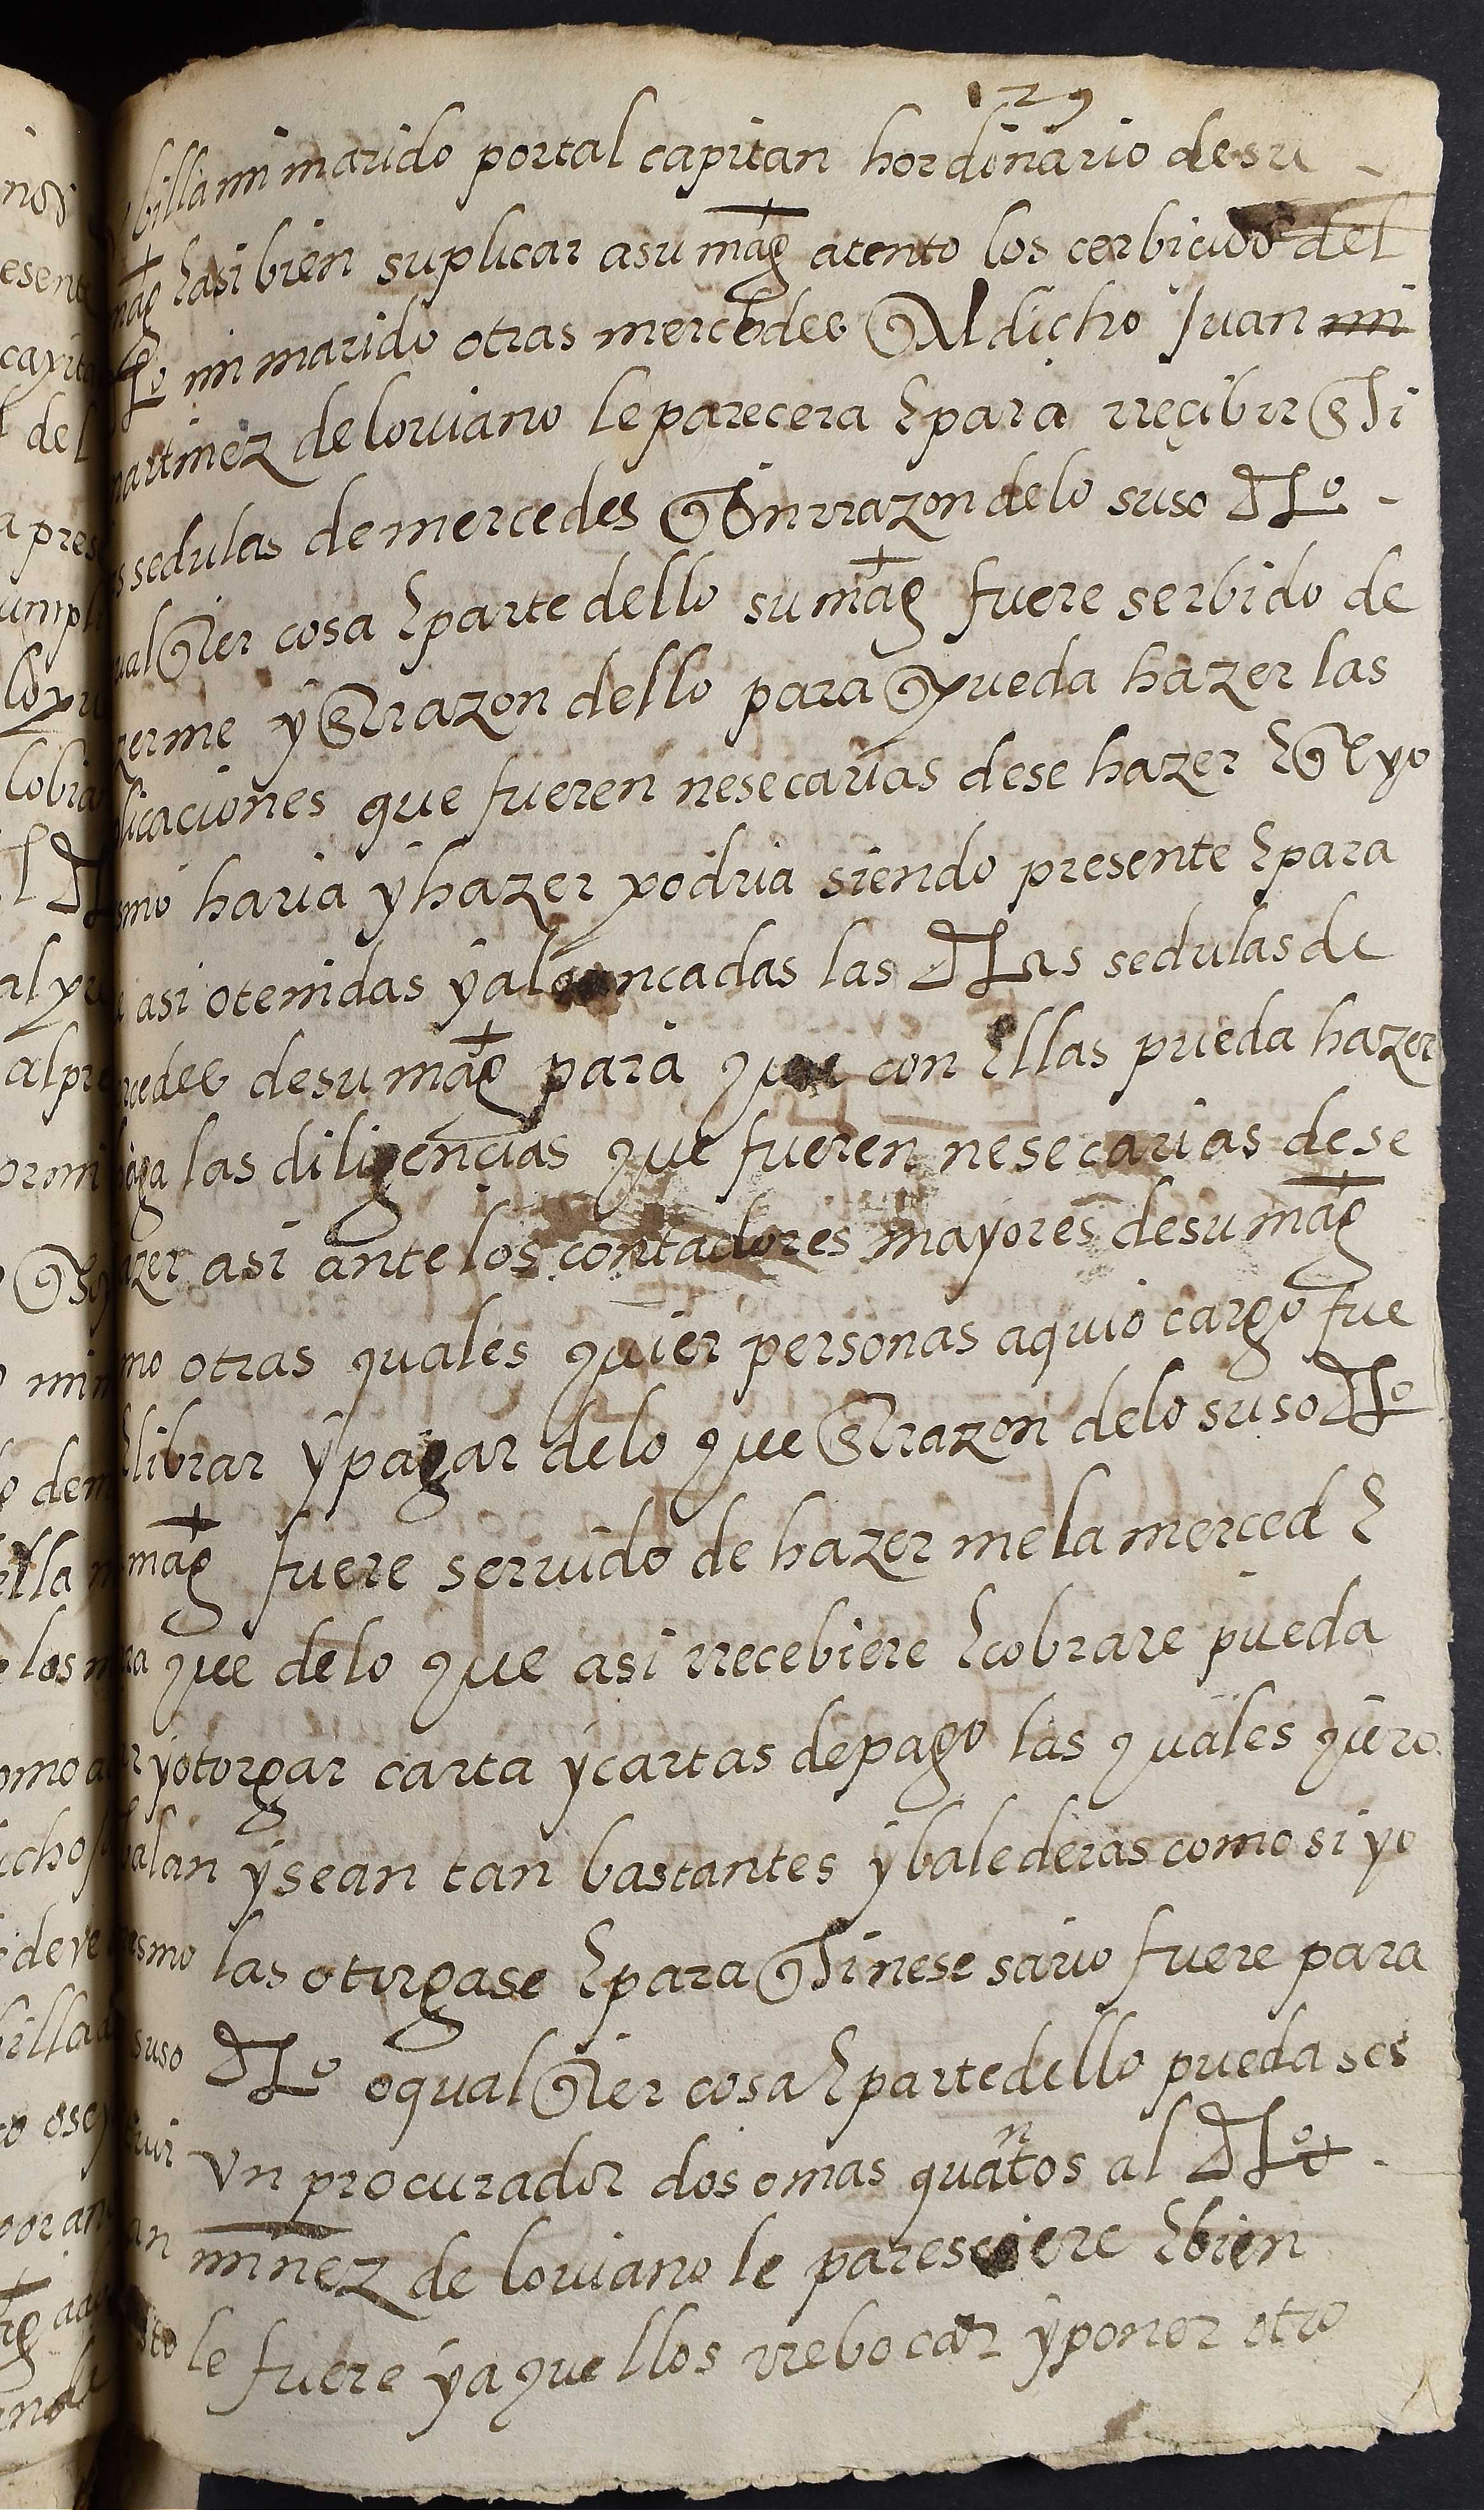 129
billa mi marido por tal capitan hordinario de su
mag e asi bien suplicar a su mag atento los cerbicios del
dho mi marido otras mercedes q al dicho Juan mi
martinez de loviano le parecera e para rreçibir q si
sedulas de mercedes q en rrazon de lo suso dho
ualqier cosa e parte dello su mag fuere serbido de
zerme y en rrazon dello para q pueda hazer las
plicaciones que fueren nesecarias de se hazer e q yo
smo haria y hazer podria siendo presente e para
asi otenidas y alcancadas las dhas sedulas de
rcedes de su mag para que con ellas pueda hazer
haga las diligencias que fueren nesecarias de se
azer asi ante los contadores mayores de su mag
mo otras quales quier personas a quio cargo fue
e librar y pagar de lo que en rrazon de lo suso dho
mag fuere servido de hazer me la merced e
ra que de lo que asi rrecebiere e cobrare pueda
ar y otorgar carta y cartas de pago las quales quiro
balan y sean tan bastantes y balederas como si yo
esmo las otorgase e para q si nesesario fuere para
suso dho o qualqier cosa e parte dello pueda sos
tuir un procurador dos o mas quantos al dho
an minez de loviano le paresciere e bien
sto le fuere y aquellos rrebocar y poner otro